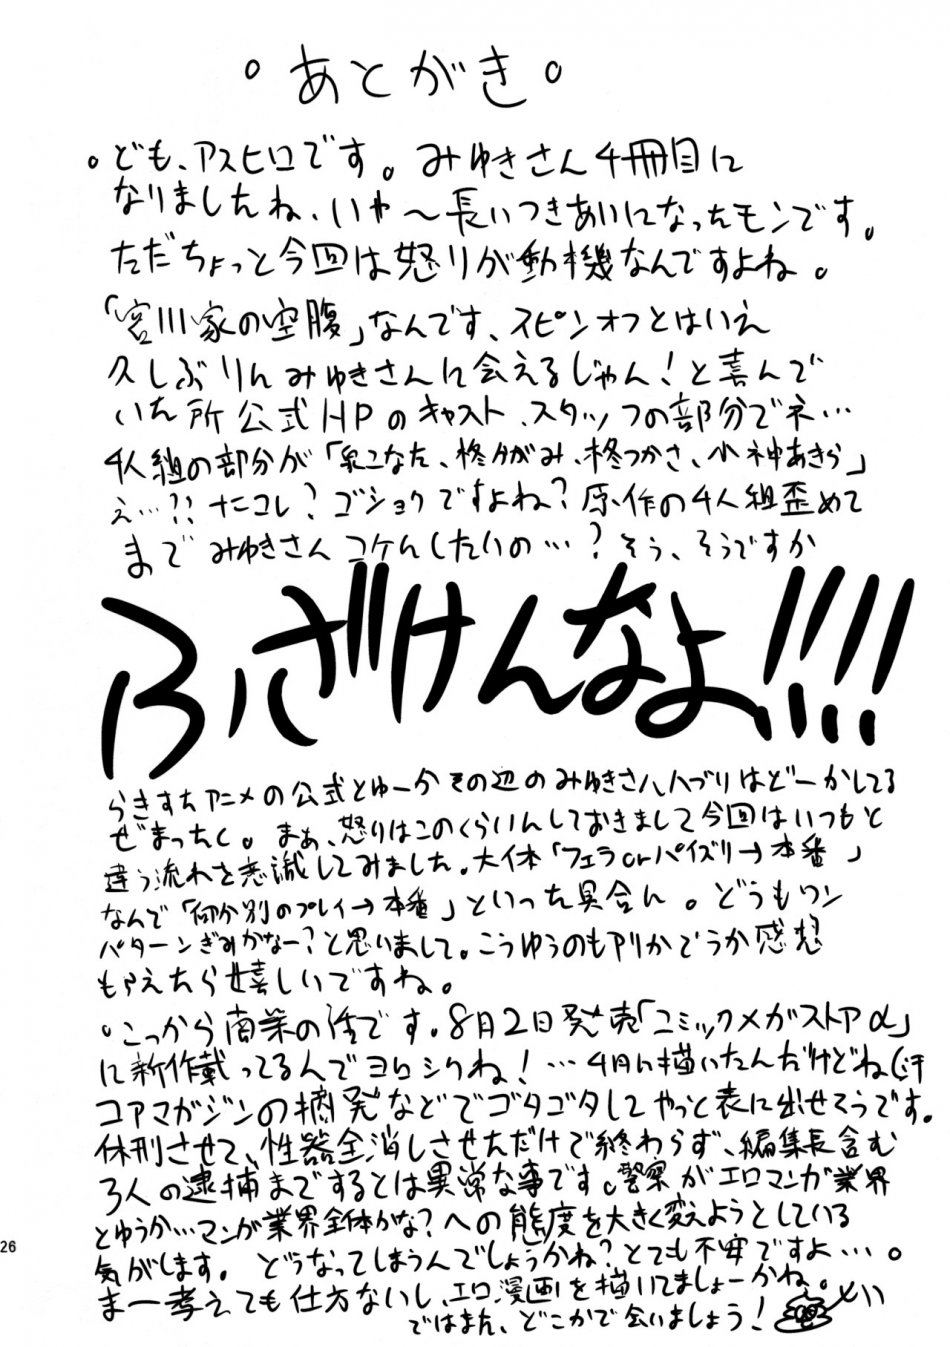 。あとがき。
。ども、アスヒロです。みゆきさん4冊目に
なりましたね、いや〜長いつきあいになったモンです。
ただちょっと今回は怒りが動機なんですよね。
「宮川家の空腹」なんです、スピンオフとはいえ
久しぶりにみゆきさんに会えるじゃん！と喜んで
いた所公式HPのキャスト、スタッフの部分でネ…
4人組の部分が「泉こなた、柊かがみ、柊つかさ、小神あきら」
え…？？ナニコレ？ゴショクですよね？原作の4人組歪めて
まで みゆきさんコケにしたいの…？そう、そうですか
ふざけんなよ!!!!
らきすたアニメの公式とゆーかその辺のみゆきさんハブリはどーかしてる
ぜまったく。まぁ、怒りはこのくらいにしておきまして今回はいつもと
違う流れを意識してみました。大体「フェラorパイズリ→本番」
なんで「何か別のプレイ→本番」といった具合に。どうもワン
パターンぎみかなー？と思いまして。こうゆうのもアリかどうか感想
もらえたら嬉しいですね。
。こっから商業の話です。8月2日発売「コミックメガストアα」
に新作載ってるんでヨロシクね！…4月に描いたんだけどね(汗
コアマガジンの摘発などでゴタゴタしてやっと表に出せそうです。
休刊させて、性器全消しさせただけで終わらず、編集長含む
3人の逮捕までするとは異常な事です。警察がエロマンガ業界
とゆうか…マンガ業界全体かな？への態度を大きく変えようとしている
気がします。どうなってしまうんでしょうかね？とても不安ですよ…。
ま一考えても仕方ないし、エロ漫画を描いてましょーかね。
ではまた、どこかで会いましょう！
26